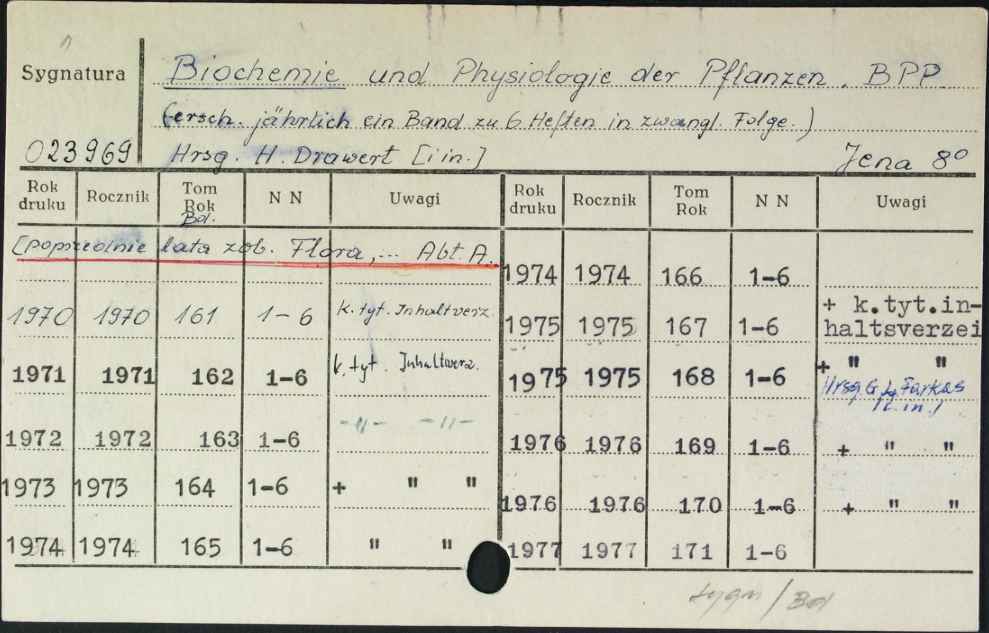 Sygnatura
Biochemie und Physiologie der Pflanzen. BPP.
(ersch. jährlich ein Band zu 6 Heften in zwangl. Folge.)
023969 Hrsg. H. Drawert [i in.] Jena 8°
Rok druku Rocznik Tom Rok Bd. N N Uwagi Rok druku Rocznik Tom Rok N N Uwagi
[poprzednie lata zob. Flora,... Abt. A.
1974 1974 166 1-6
1970 1970 161 1-6 k. tyt. Inhaltverz.
1975 1975 167 1-6 + k.tyt.in-
haltsverzei
1971 1971 162 1-6 k. tyt. Inhaltverz.
1975 1975 168 1-6 + " "
Hrsg. G. L. Farkas
[i in.]
1972 1972 163 1-6 -"- -"-
1976 1976 169 1-6 + " "
1973 1973 164 1-6 + " "
1976 1976 170 1-6 + " "
1974 1974 165 1-6 " "
1977 1977 171 1-6
/ Bot